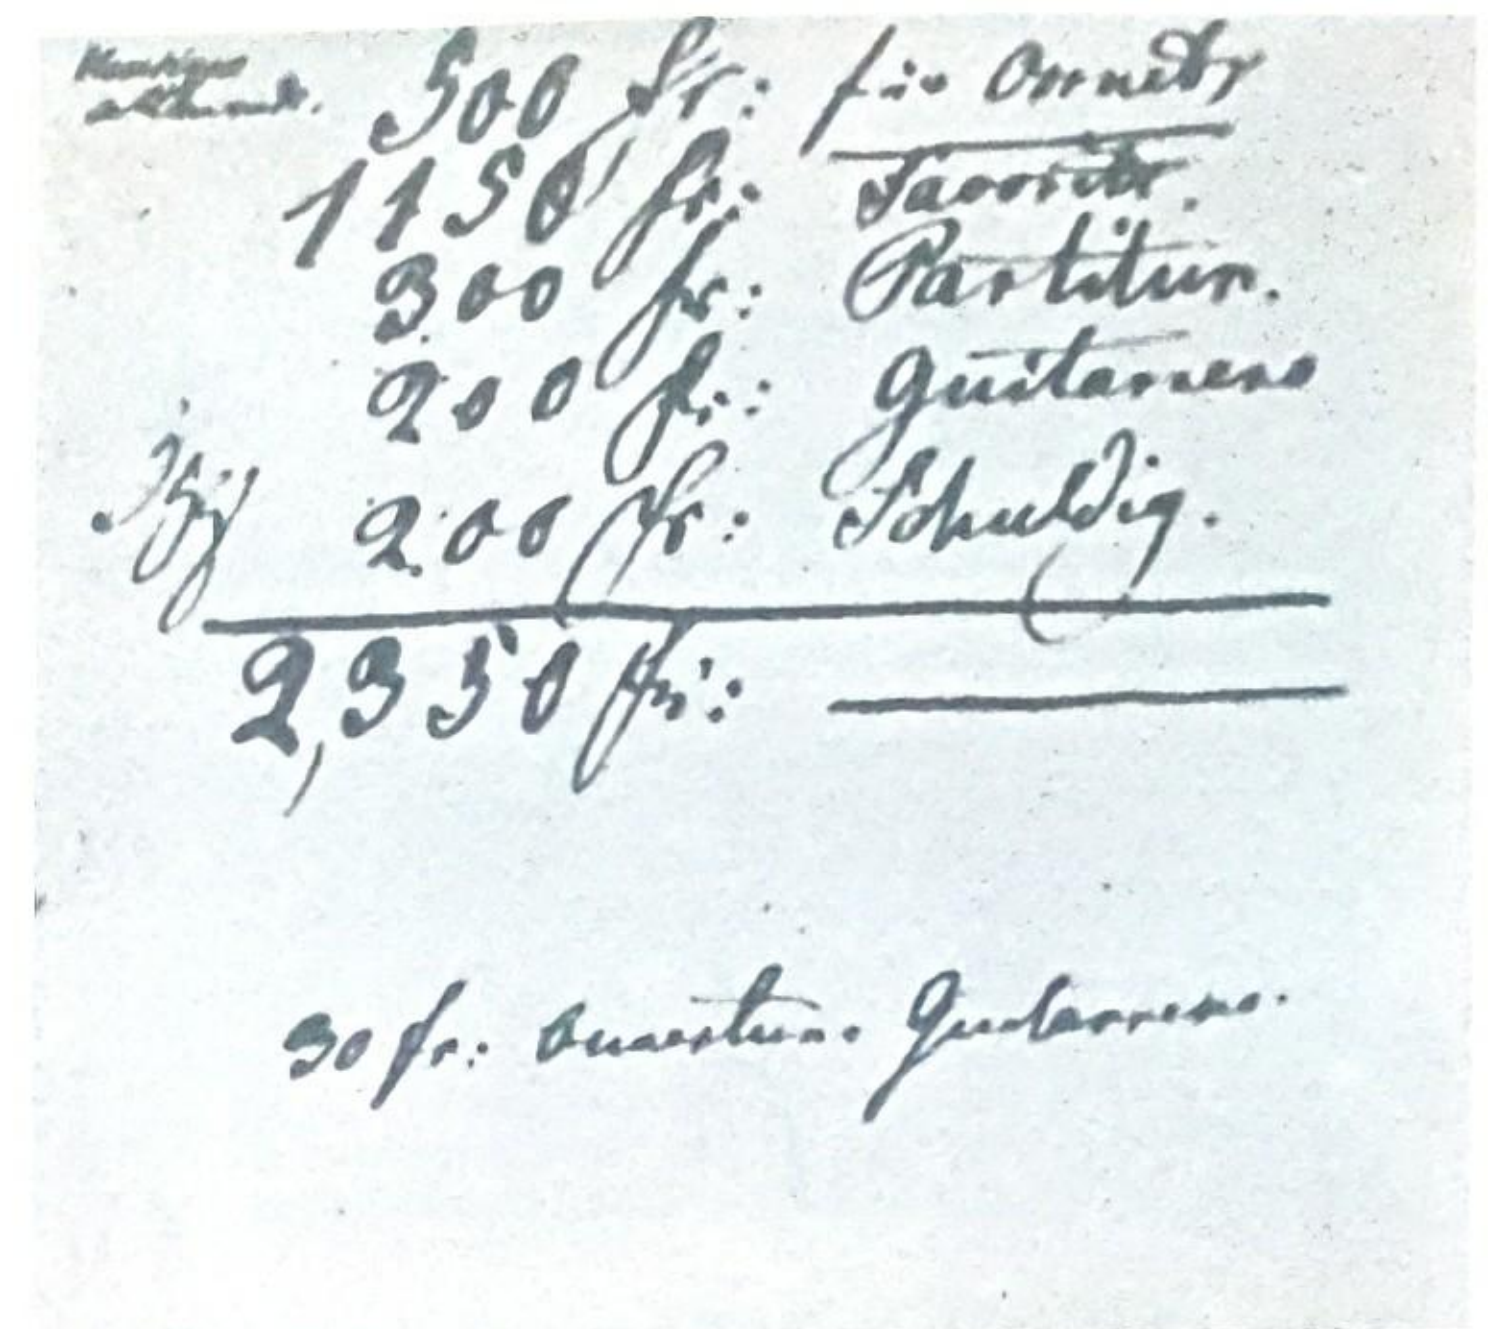 500 fr: für Cornets
1150 fr: Favorite.
300 fr: Partitur.
200 fr: Guitarrero
200 fr: Schuldig.
2,350 fr:
30 fr: Ouvertur. Guitarrero.